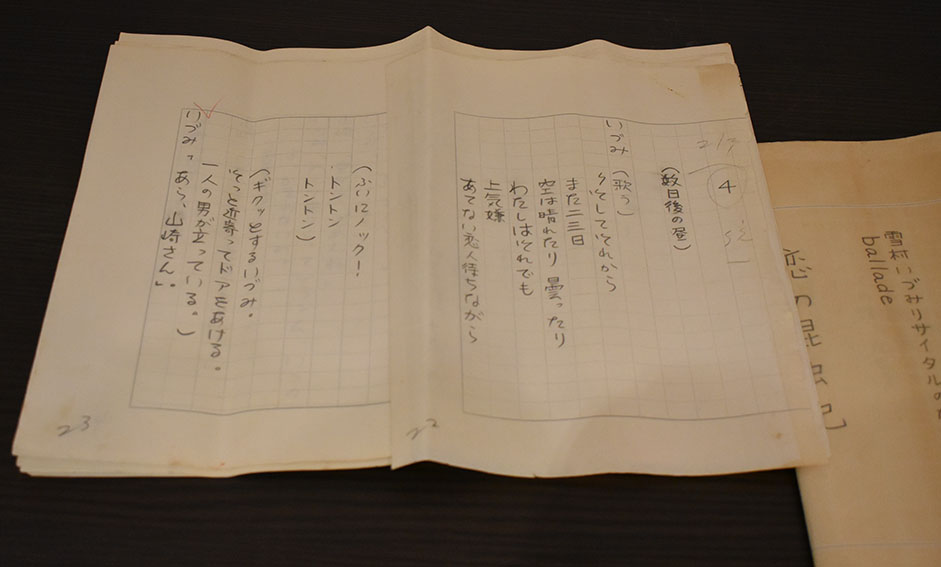 4
(数日後の昼)
いづみ (歌う)
♪そしてそれから
まだ二三日
空は晴れたり 曇ったり
わたしはそれでも
上気嫌
あてない恋人待ちながら
22
(ふいにノック!
トントン
トントン)
(ギクッとするいづみ。
そっと近寄ってドアをあける。
一人の男が立っている。)
いづみ「あら、山崎さん」
23
雪村いづみリサイタルの
ballade
恋の昆虫記